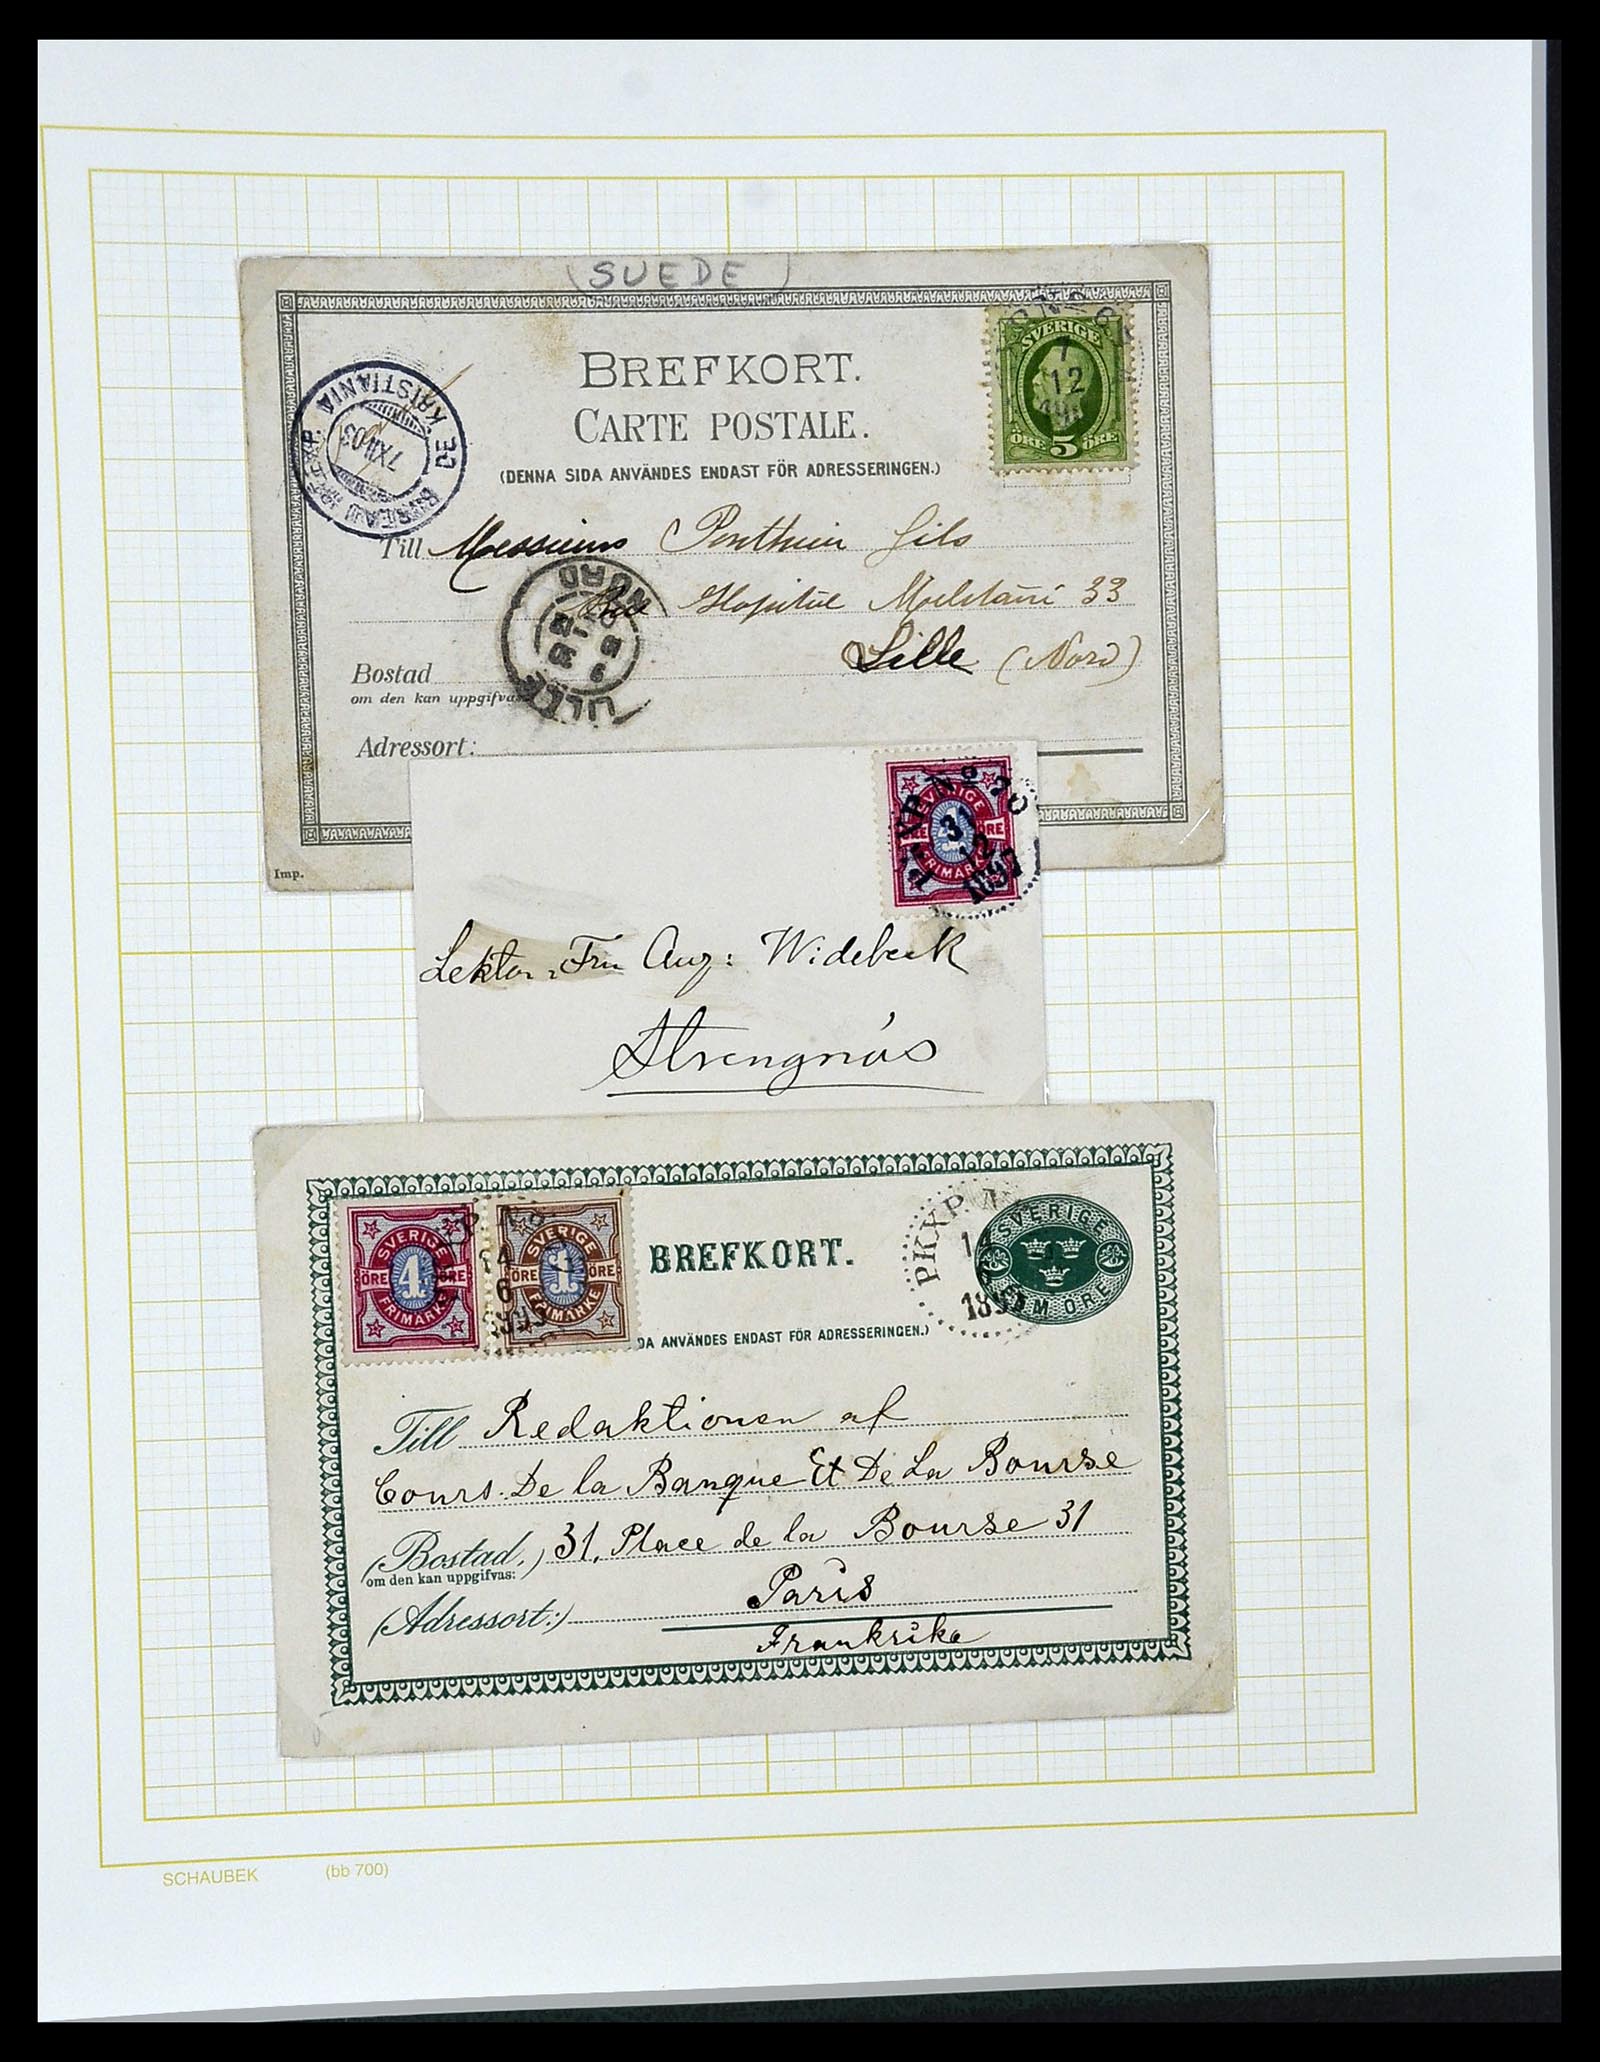 (SUEDE)
BREFKORT.
CARTE POSTALE.
(DENNA SIDA ANVÄNDES ENDAST FÖR ADRESSERINGEN.)
SVERIGE
7
12
ÖRE 5 ÖRE
BUREAU DE KRISTIANIA
7 XII 03
Till Messieurs Ponthieu fils
Rue Hopital Militaire 33
Lille (Nord)
LILLE
NORD
Bostad
om den kan uppgifvas
Adressort:
Imp.
SVERIGE
ÖRE 4 ÖRE
FRIMÄRKE
PKXP No
31
12
1897
Lektor Fru Aug: Widebeck
Strengnäs
SVERIGE
ÖRE 4 ÖRE
FRIMÄRKE
SVERIGE
ÖRE 1 ÖRE
FRIMÄRKE
BREFKORT.
PKXP.
SVERIGE
FEM ÖRE
DA ANVÄNDES ENDAST FÖR ADRESSERINGEN.)
Till Redaktionen af
Cours. De la Banque Et De La Bourse
(Bostad,) 31, Place de la Bourse 31
om den kan uppgifvas:
Paris
(Adressort:)
Frankrike
SCHAUBEK (bb 700)